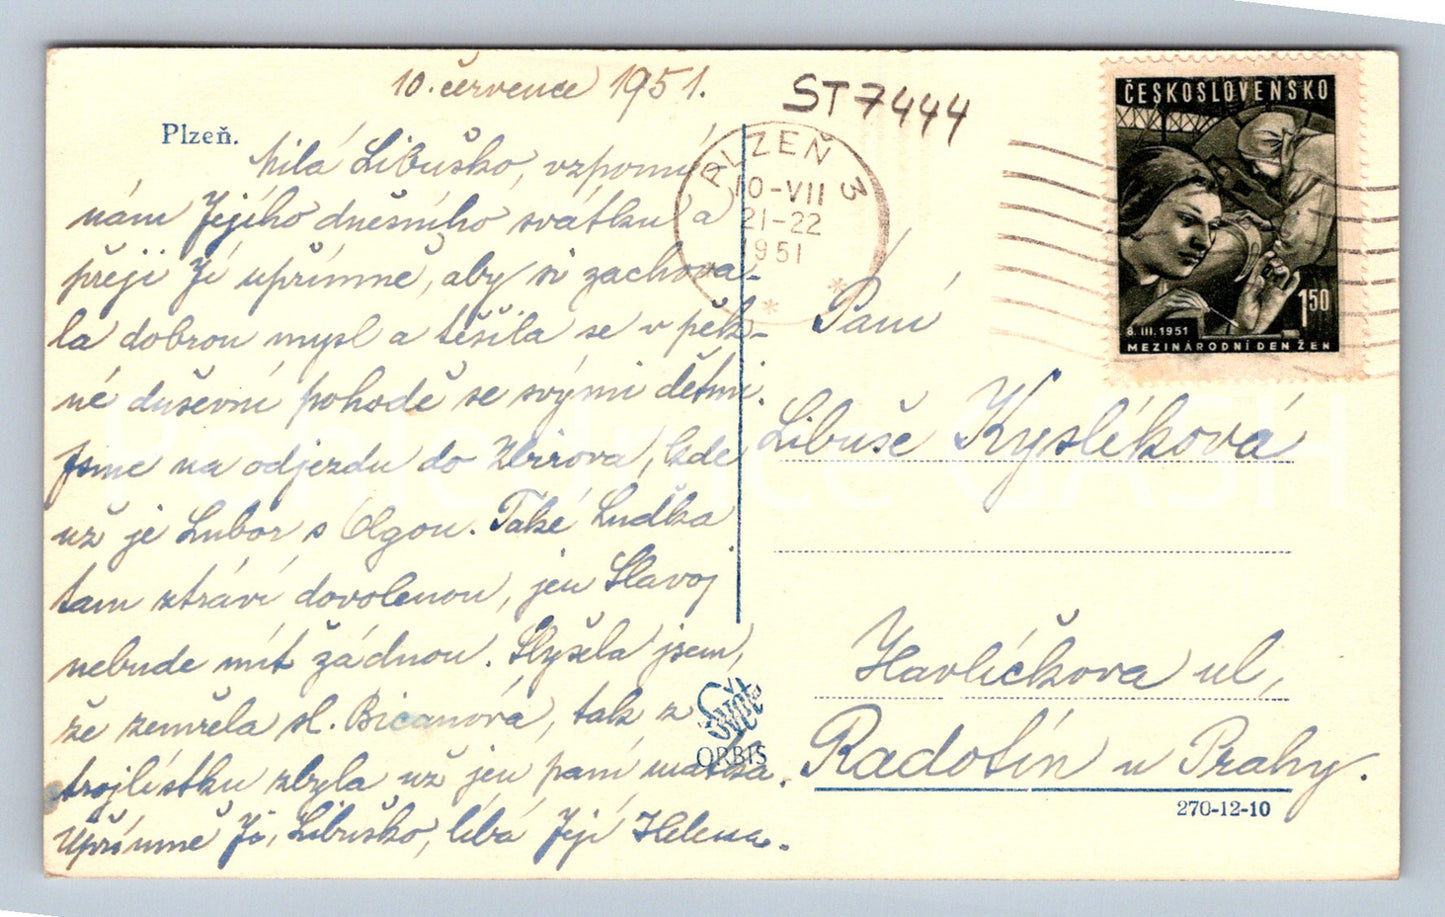 10. července 1951.
ST 7444
Plzeň.
Milá Libuško, vzpomí-
nám Jejího dnešního svátku a
přeji Jí upřímně, aby si zachova-
la dobrou mysl a těšila se v pěk-
né duševní pohodě se svými dětmi.
Jsme na odjezdu do Zbirova, kde
už je Lubor s Olgou. Také Luďka
tam ztráví dovolenou, jen Slavoj
nebude mít žádnou. Slyšela jsem,
že zemřela sl. Bicanová, tak z
trojlístku zbyla už jen paní matka.
Upřímně Ji, Libuško, líbá Její Helena.
PLZEŇ 3
10-VII
21-22
1951
ČESKOSLOVENSKO
150
8. III. 1951
MEZINÁRODNÍ DEN ŽEN
Paní
Libuše Kyslíková
Havlíčkova ul,
Radotín u Prahy.
Svět
ORBIS
270-12-10
Pohlednice GASH